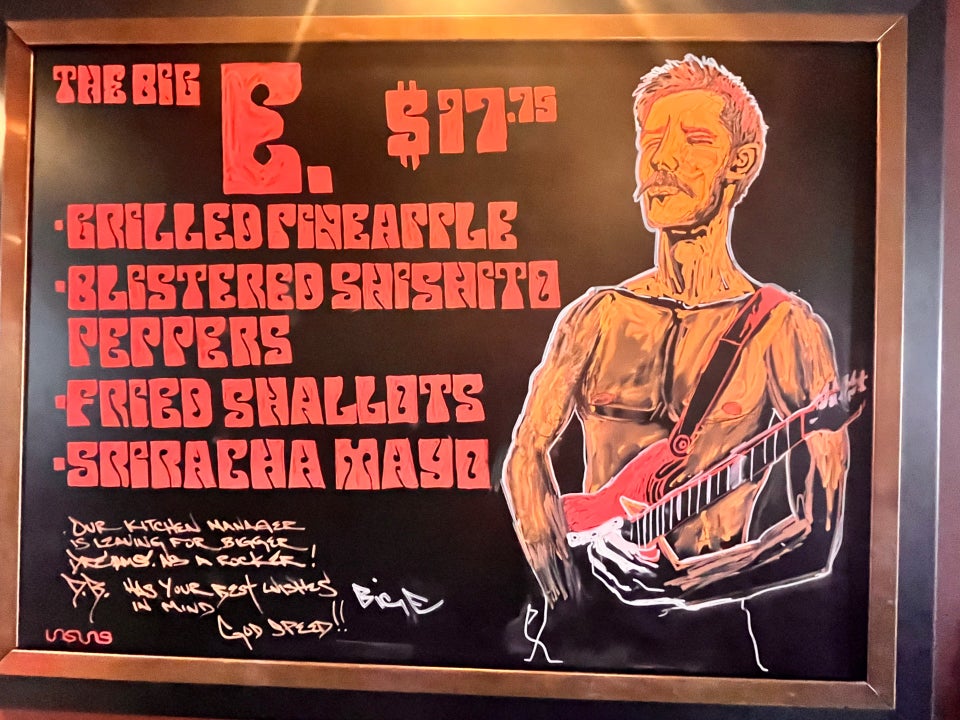 THE BIG E. $17.75
·GRILLED PINEAPPLE
·BLISTERED SHISHITO
PEPPERS
·FRIED SHALLOTS
·SRIRACHA MAYO
OUR KITCHEN MANAGER
IS LEAVING FOR BIGGER
DREAMS, AS A ROCKER!
P.B. HAS YOUR BEST WISHES
IN MIND
GOD SPEED!!
BIG E